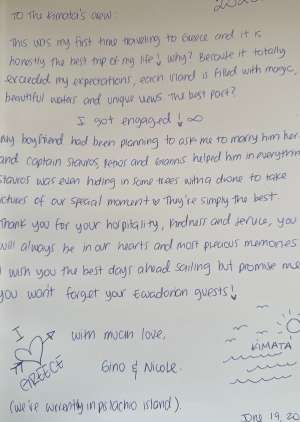 To The Kimata's crew:
This was my first time traveling to Greece and it is
honestly the best trip of my life! Why? Because it totally
exceeded my expectations, each island is filled with magic,
beautiful waters and unique views. The best part?
I got engaged! ∞
My boyfriend had been planning to ask me to marry him here
and captain Stavros, and Giannis helped him in everything
Stavros was even hiding in some trees with a drone to take
ctures of our special moment ♡ They're simply the best
Thank you for your hospitality, kindness and service, you
will always be in our hearts and most precious memories
I wish you the best days ahead sailing but promise me
you won't forget your Ecuadorian guests!
I
GREECE
with much love,
Gino & Nicole.
KIMATA
(we're currently in pistachio island).
June 19, 20